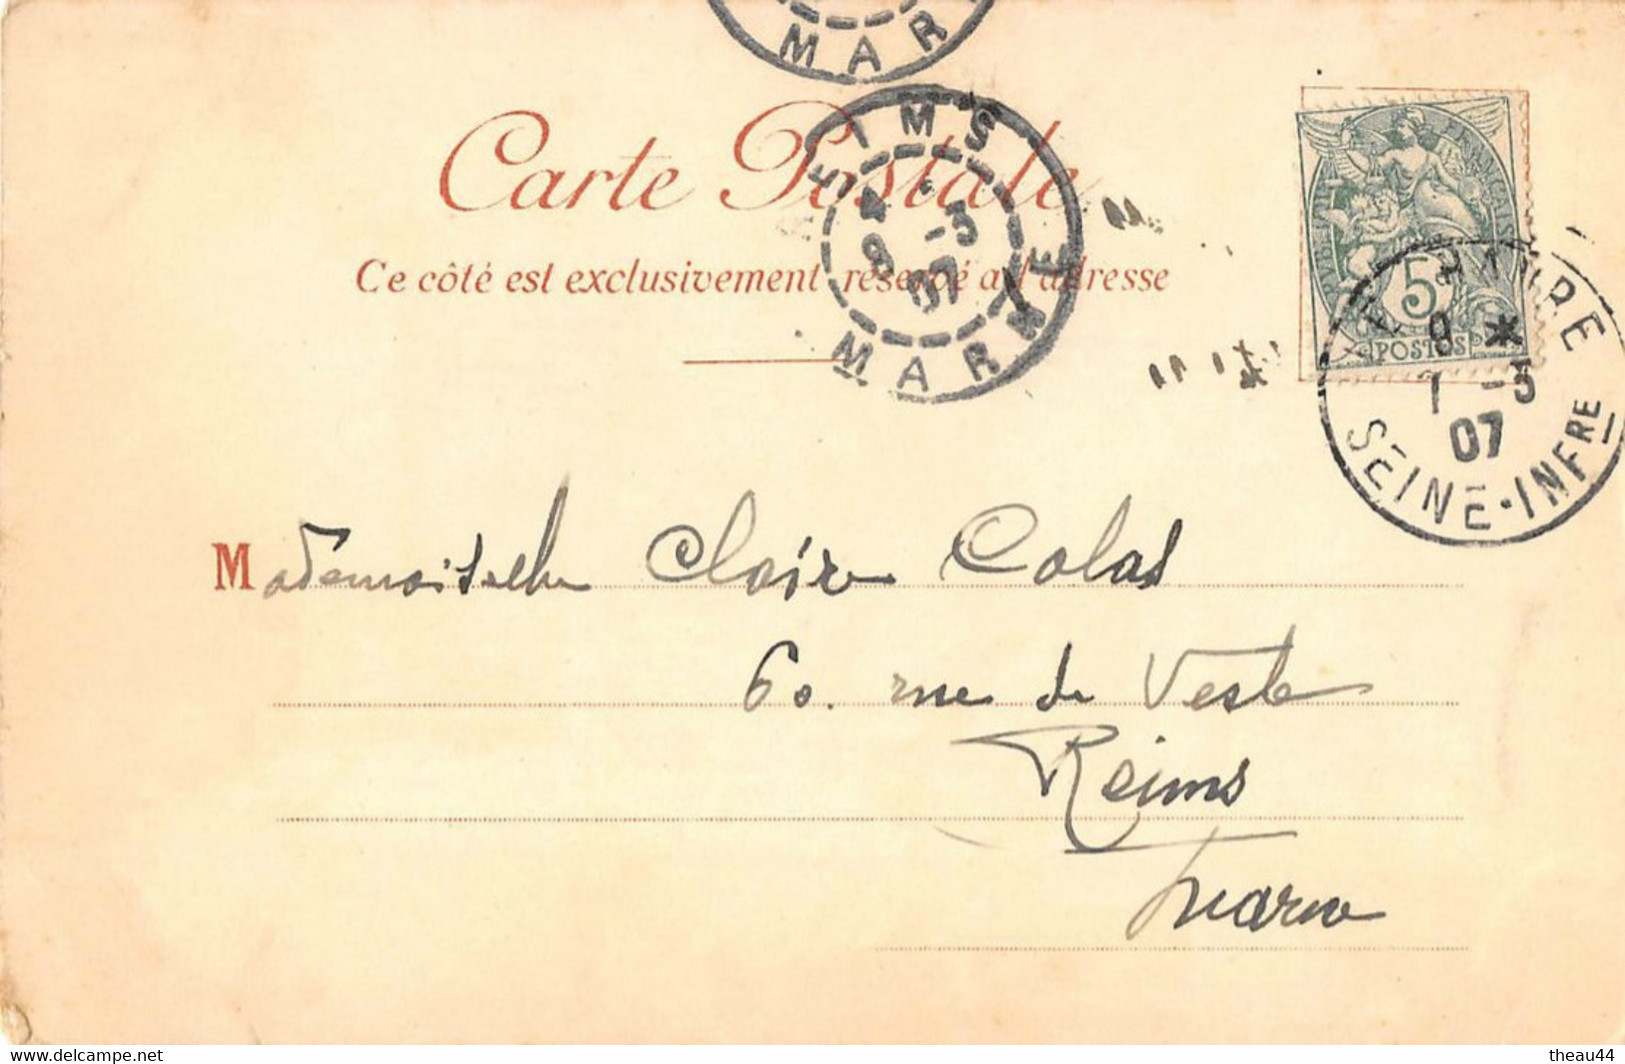 MAR
Carte Postale
Ce côté est exclusivement réservé à l'adresse
REIMS
4
8 -3
07
MARNE
RÉPUBLIQUE FRANÇAISE
5
POSTES
LE HAVRE
8 *
7 -3
07
SEINE-INFRE
Mademoiselle Claire Colas
60. rue de Vesle
Reims
Marne
www.delcampe.net
theau44